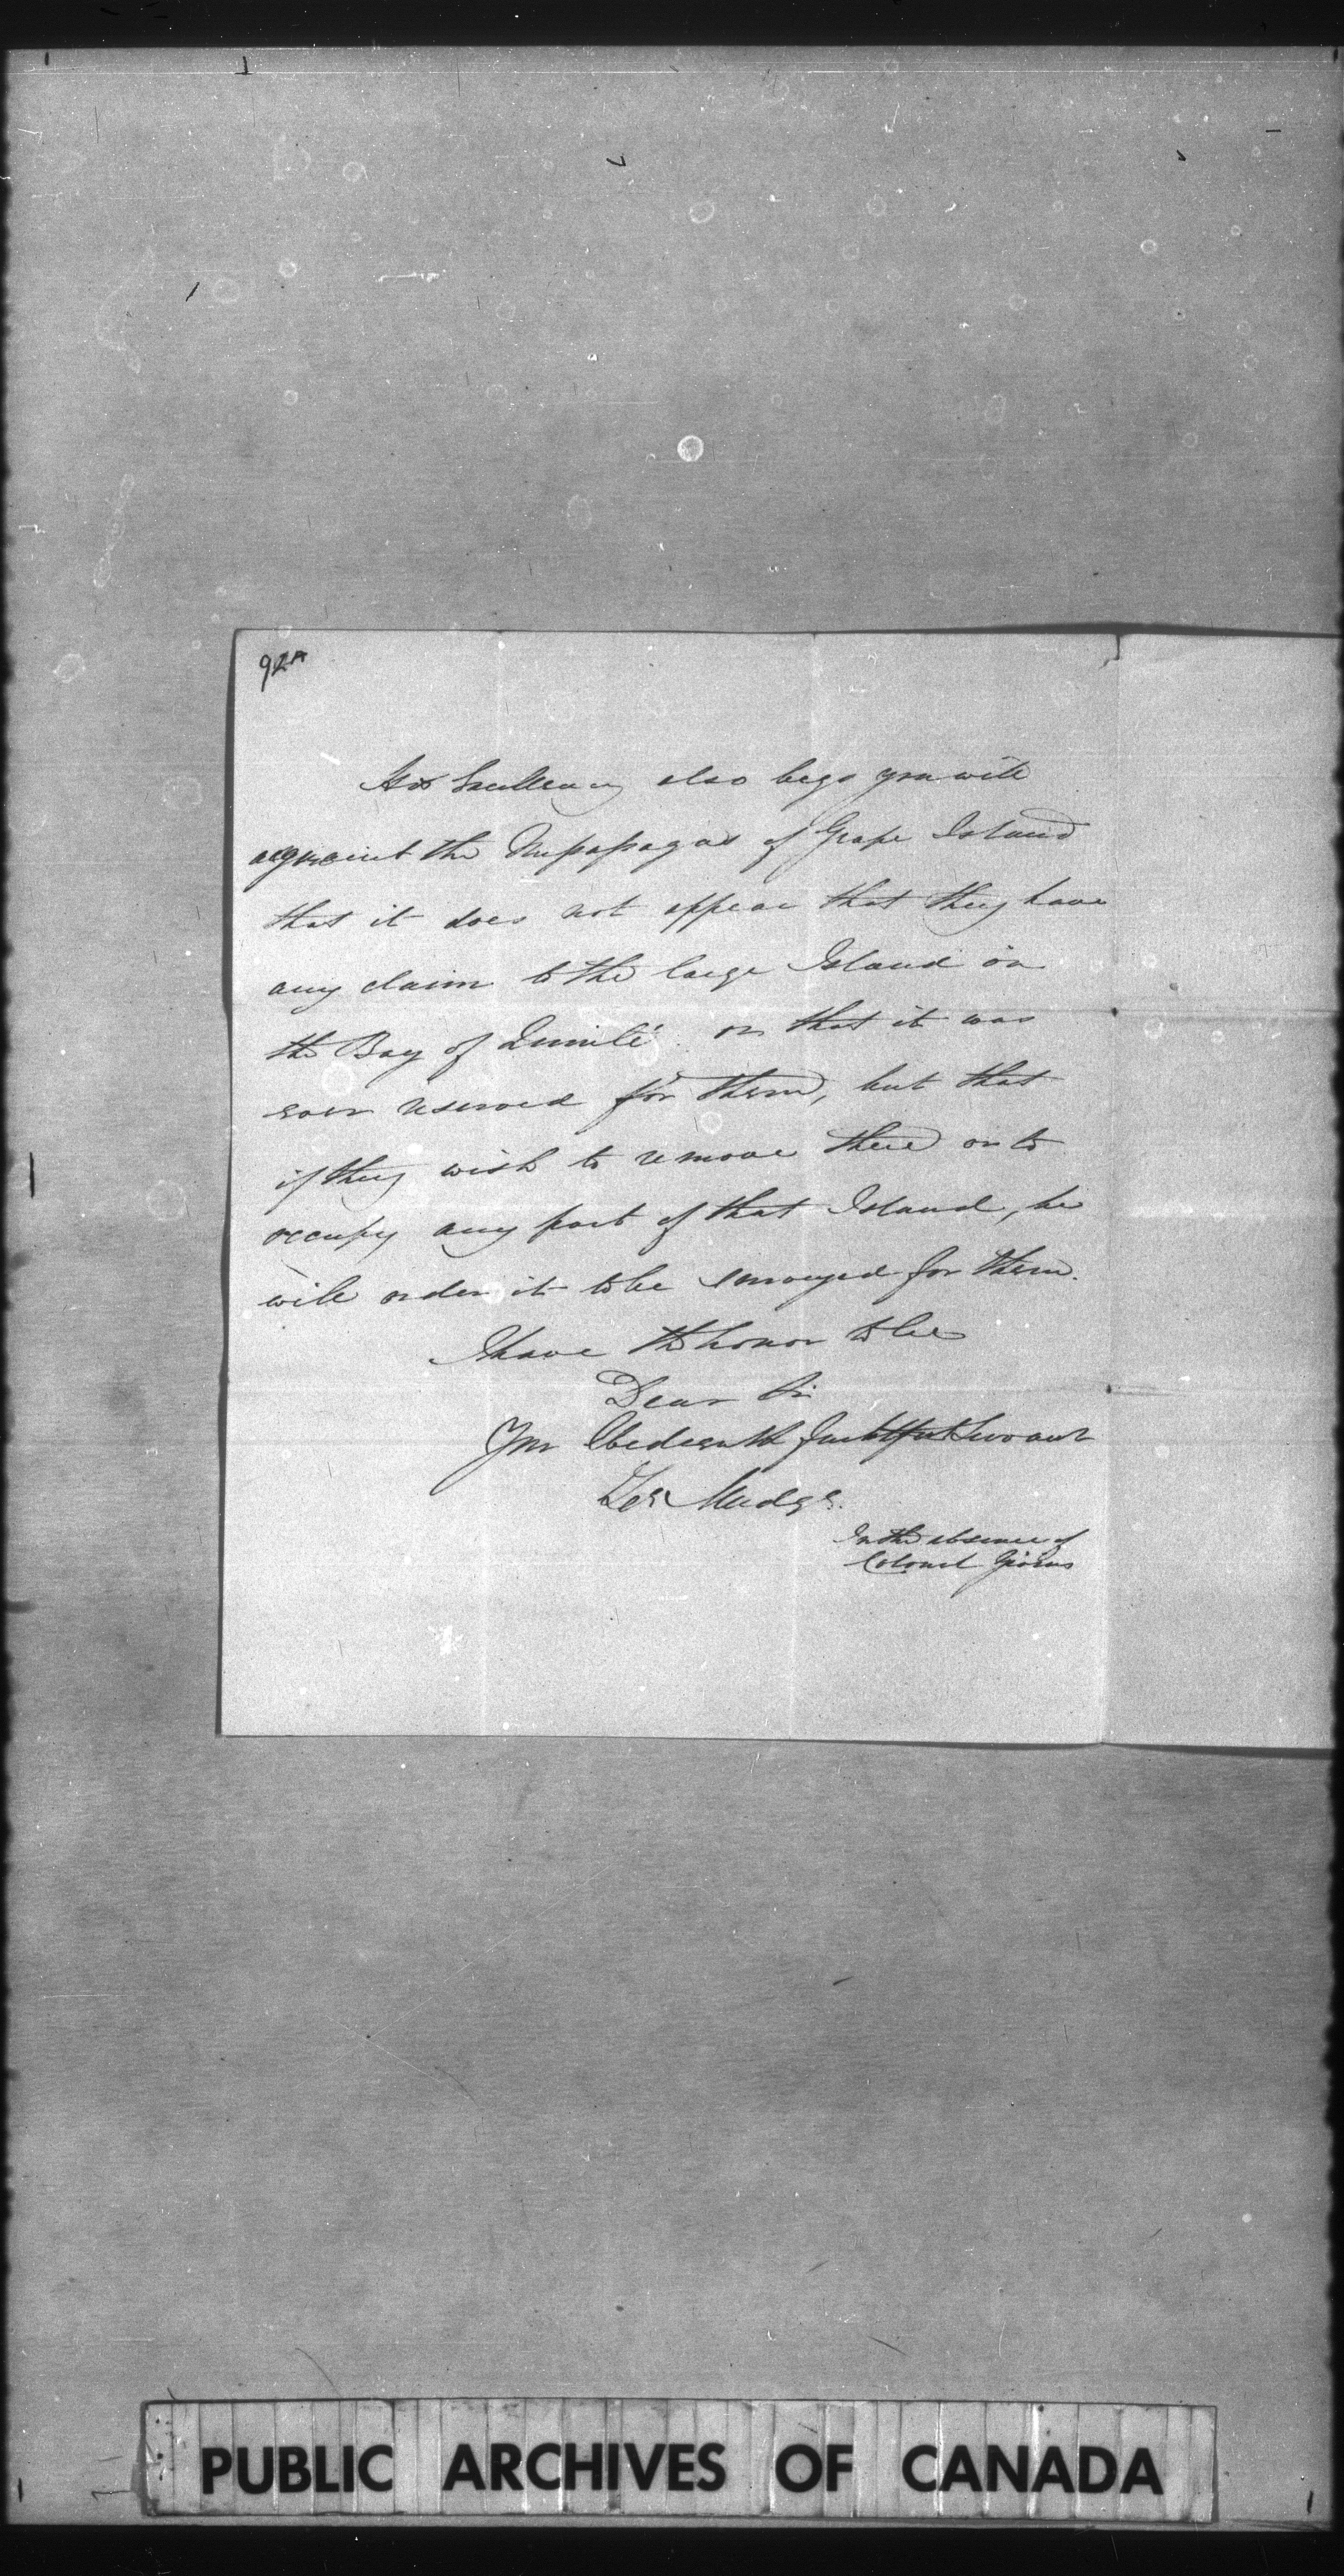 92A
His Excellency also begs you will
acquaint the Missisagas of Grape Island
that it does not appear that they have
any claim to the large Island in
the Bay of Quinté or that it was
ever reserved for them, but that
if they wish to remove there or to
occupy any part of that Island, he
will order it to be surveyed for them.
I have the honor to be
Dear Sir
Your Obedient & faithful Servant
Z Mudge.
In the absence of
Colonel Givins
PUBLIC ARCHIVES OF CANADA